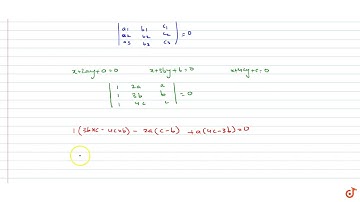 | a1 b1 c1 |
| a2 b2 c2 | = 0
| a3 b3 c3 |
x+2ay+a=0 x+3by+b=0 x+4cy+c=0
| 1 2a a |
| 1 3b b | = 0
| 1 4c c |
1(3bxc - 4cxb) - 2a(c-b) + a(4c-3b)=0